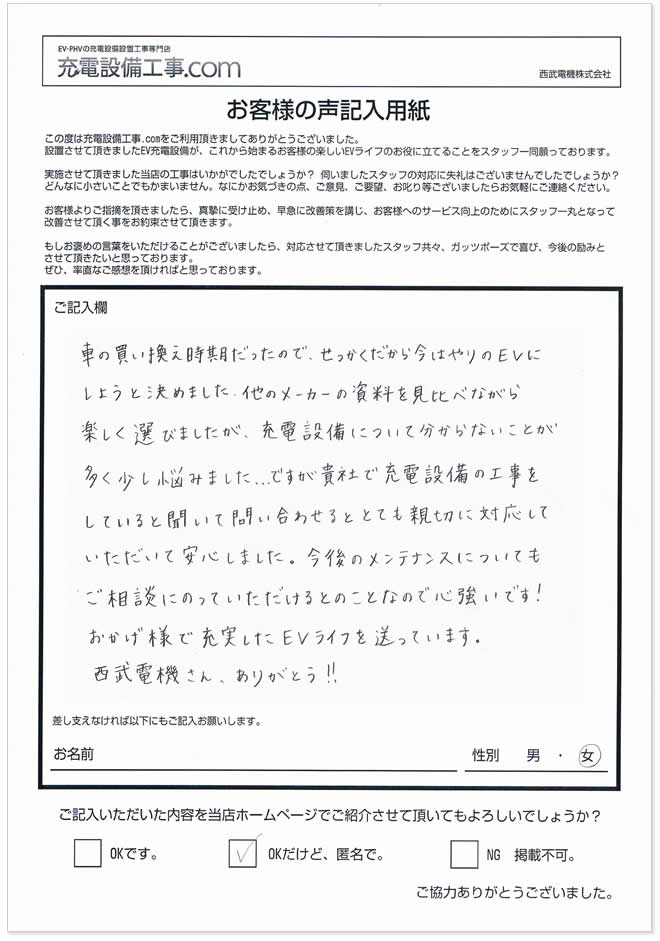 EV・PHVの充電設備設置工事専門店
充電設備工事.com
西武電機株式会社
お客様の声記入用紙
この度は充電設備工事.comをご利用頂きましてありがとうございました。
設置させて頂きましたEV充電設備が、これから始まるお客様の楽しいEVライフのお役に立てることをスタッフ一同願っております。
実施させて頂きました当店の工事はいかがでしたでしょうか？ 伺いましたスタッフの対応に失礼はございませんでしたでしょうか？
どんなに小さいことでもかまいません。なにかお気づきの点、ご意見、ご要望、お叱り等ございましたらお気軽にご連絡ください。
お客様よりご指摘を頂きましたら、真摯に受け止め、早急に改善策を講じ、お客様へのサービス向上のためにスタッフ一丸となって
改善させて頂く事をお約束させて頂きます。
もしお褒めの言葉をいただけることがございましたら、対応させて頂きましたスタッフ共々、ガッツポーズで喜び、今後の励みと
させて頂きたいと思っております。
ぜひ、率直なご感想を頂ければと思っております。
ご記入欄
車の買い換え時期だったので、せっかくだから今はやりのEVに
しようと決めました。他のメーカーの資料を見比べながら
楽しく選びましたが、充電設備について分からないことが
多く少し悩みました...ですが貴社で充電設備の工事を
していると聞いて問い合わせるととても親切に対応して
いただいて安心しました。今後のメンテナンスについても
ご相談にのっていただけるとのことなので心強いです!
おかげ様で充実したEVライフを送っています。
西武電機さん、ありがとう!!
差し支えなければ以下にもご記入お願いします。
お名前 性別 男 ・ 女
ご記入いただいた内容を当店ホームページでご紹介させて頂いてもよろしいでしょうか？
OKです。 OKだけど、匿名で。 NG 掲載不可。
ご協力ありがとうございました。